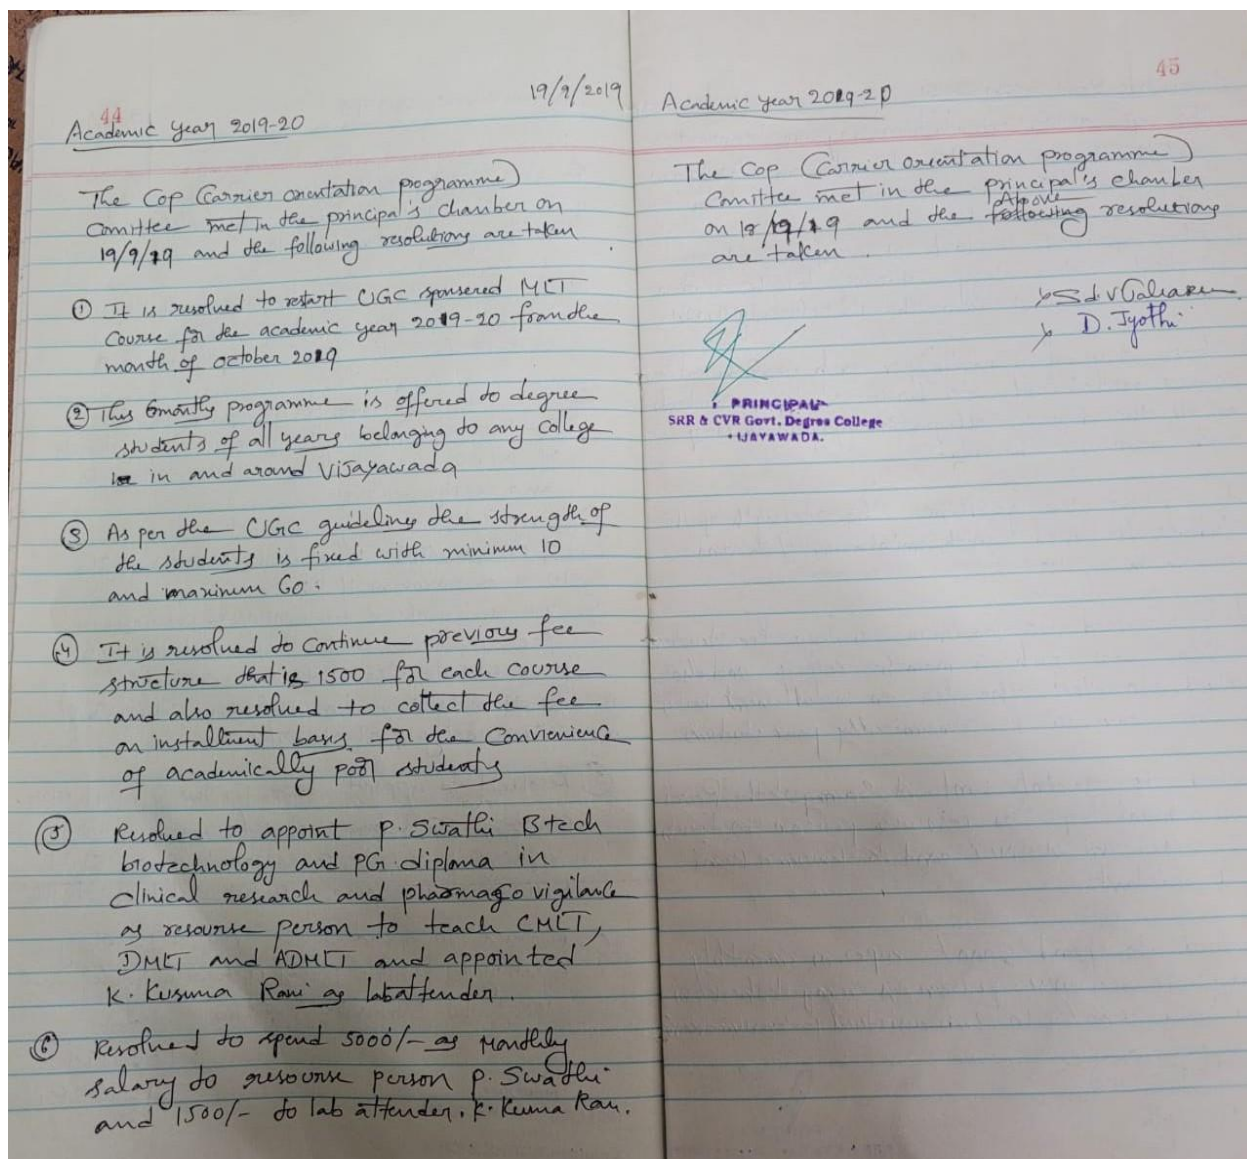 44
19/9/2019
Academic year 2019-20
The Cop (Carrier orientation programme)
Comittee met in the principal's chamber on
19/9/19 and the following resolutions are taken
① It is resolved to restart UGC sponsered MLT
Course for the academic year 2019-20 from the
month of october 2019
② This 6montly programme is offered to degree
students of all years belonging to any College
in and around Vijayawada
③ As per the UGC guidelines the strength of
the students is fixed with minimum 10
and maximum 60.
④ It is resolved to Continue previous fee
structure that is 1500 for each course
and also resolved to collect the fee
on installment basis for the Convienience
of academically poor students
⑤ Resolved to appoint P. Swathi Btech
biotechnology and PG diploma in
clinical research and pharmaco vigilance
as resourse person to teach CMLT,
DMLT and ADMLT and appointed
K. Kusuma Rani as lab attender.
⑥ Resolved to spend 5000/- as Monthly
salary to resourse person P. Swathi
and 1500/- to lab attender. K. Kuma Rani.
45
Academic year 2019-20
The Cop (Carrier orientation programme)
Comittee met in the principal's chamber
Above
on 19/19 and the following resolutions
are taken.
D. Jyothi
PRINCIPAL
SRR & CVR Govt. Degree College
VIJAYAWADA.